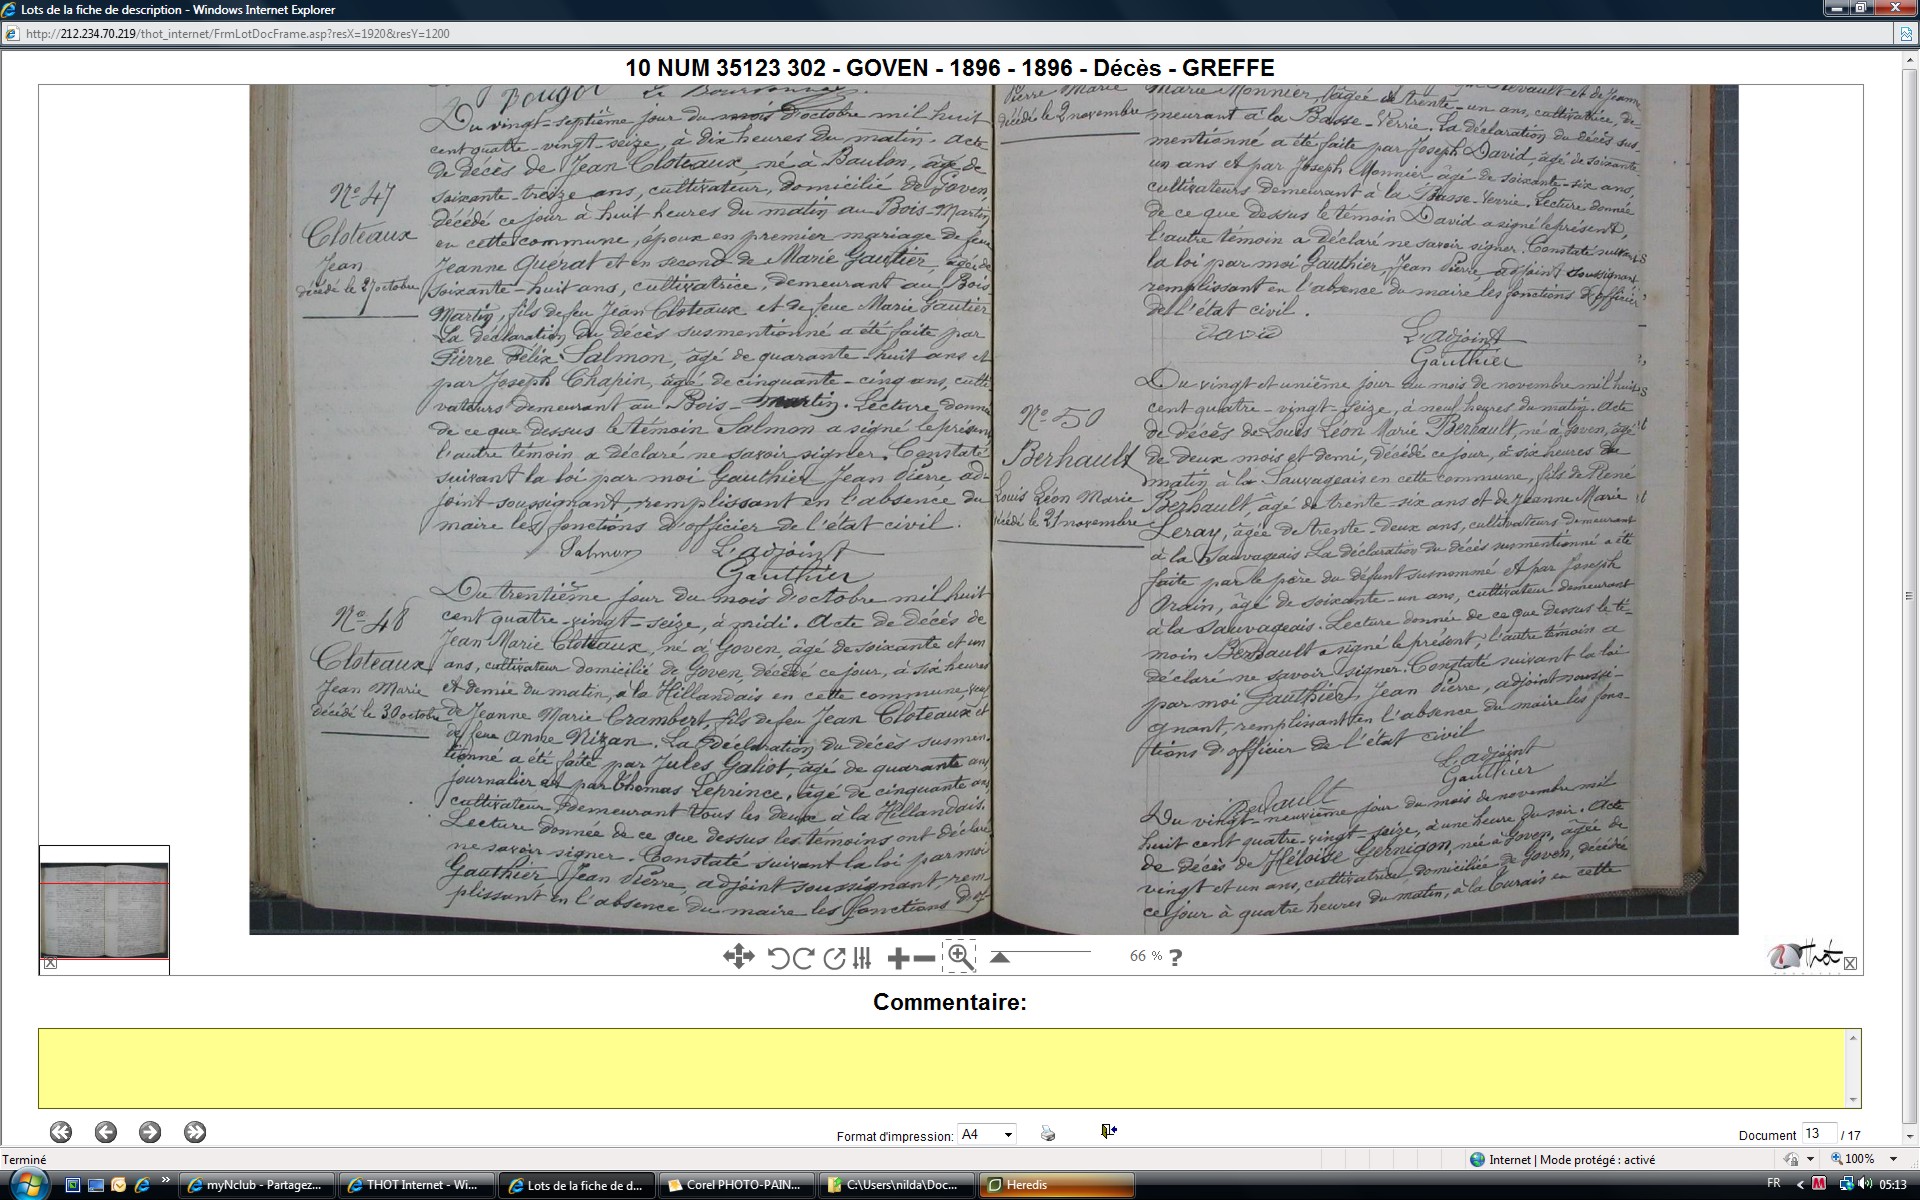 Lots de la fiche de description - Windows Internet Explorer
http://212.234.70.219/thot_internet/FrmLotDocFrame.asp?resX=1920&resY=1200
10 NUM 35123 302 - GOVEN - 1896 - 1896 - Décès - GREFFE
Du vingt-septième jour du mois d'octobre mil huit
cent quatre-vingt-seize, à dix heures du matin. Acte
de décès de Jean Cloteaux, né à Baulon, âgé de
soixante-treize ans, cultivateur, domicilié de Goven,
décédé ce jour à huit heures du matin au Bois-Martin
en cette commune, époux en premier mariage de feue
Jeanne Quérat et en second de Marie Gautier, âgée de
soixante-huit ans, cultivatrice, demeurant au Bois
Martin, fils de feu Jean Cloteaux et de feue Marie Gautier
La déclaration du décès susmentionné a été faite par
Pierre Félix Salmon, âgé de quarante-huit ans et
par Joseph Chapin, âgé de cinquante-cinq ans, culti-
vateurs demeurant au Bois-Martin. Lecture donnée
de ce que dessus le témoin Salmon a signé le présent
l'autre témoin a déclaré ne savoir signer. Constaté
suivant la loi par moi Gauthier Jean Pierre ad-
joint soussignant, remplissant en l'absence du
maire les fonctions d'officier de l'état civil.
Salmon L'adjoint
Gauthier
No 47
Cloteaux
Jean
décédé le 27 octobre
Du trentième jour du mois d'octobre mil huit
cent quatre-vingt-seize, à midi. Acte de décès de
Jean Marie Cloteaux, né à Goven, âgé de soixante et un
ans, cultivateur domicilié de Goven décédé ce jour, à six heures
et demie du matin, à la Hillandais en cette commune, veuf
de Jeanne Marie Crambert, fils de feu Jean Cloteaux et
de feue Anne Nizan. La déclaration du décès susmen-
tionné a été faite par Jules Galiot, âgé de quarante ans
journalier et par Thomas Leprince, âgé de cinquante ans,
cultivateur demeurant tous les deux à la Hillandais.
Lecture donnée de ce que dessus les témoins ont déclaré
ne savoir signer. Constaté suivant la loi par moi
Gauthier Jean Pierre, adjoint soussignant, rem-
plissant en l'absence du maire les fonctions d'of-
No 48
Cloteaux
Jean Marie
décédé le 30 octobre
Pierre Marie
décédé le 2 novembre
Marie Monnier, âgée de trente-un ans, cultivatrice, de-
meurant à la Basse-Verrie. La déclaration du décès sus-
mentionné a été faite par Joseph David, âgé de soixante-
un ans et par Joseph Monnier âgé de soixante-six ans,
cultivateurs demeurant à la Basse-Verrie. Lecture donnée
de ce que dessus le témoin David a signé le présent,
l'autre témoin a déclaré ne savoir signer. Constaté suivant
la loi par moi Gauthier, Jean Pierre, adjoint soussignant
remplissant en l'absence du maire les fonctions d'officier
de l'état civil.
David L'adjoint
Gauthier
No 50
Berhault
Louis Léon Marie
décédé le 21 novembre
Du vingt et unième jour du mois de novembre mil huit
cent quatre-vingt-seize, à neuf heures du matin. Acte
de décès de Louis Léon Marie Berhault, né à Goven, âgé
de deux mois et demi, décédé ce jour, à six heures du
matin à la Sauvageais en cette commune, fils de René
Berhault, âgé de trente-six ans et de Jeanne Marie
Leray, âgée de trente-deux ans, cultivateurs demeurant
à la Sauvageais. La déclaration du décès susmentionné a été
faite par le père du défunt susnommé et par Joseph
âgé de soixante-un ans, cultivateur demeurant
à la Sauvageais. Lecture donnée de ce que dessus le té-
moin Berhault a signé le présent, l'autre témoin a
déclaré ne savoir signer. Constaté suivant la loi
par moi Gauthier, Jean Pierre, adjoint soussi-
gnant, remplissant en l'absence du maire les fonc-
tions d'officier de l'état civil
L'adjoint
Berhault Gauthier
Du vingt-neuvième jour du mois de novembre mil
huit cent quatre-vingt-seize, à une heure du soir. Acte
de décès de Héloïse Gernigon, née à Goven, âgée de
vingt et un ans, cultivatrice, domiciliée de Goven, décédée
ce jour à quatre heures du matin, à la Curais en cette
66 % ?
Thot
Commentaire:
Format d'impression: A4
Document 13 / 17
Terminé
Internet | Mode protégé : activé
100%
myNclub - Partagez...
THOT Internet - Wi...
Lots de la fiche de d...
Corel PHOTO-PAIN...
C:\Users\nilda\Doc...
Heredis
FR
05:13